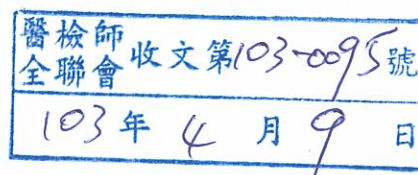 醫檢師全聯會收文第103-0095號
103年4月9日